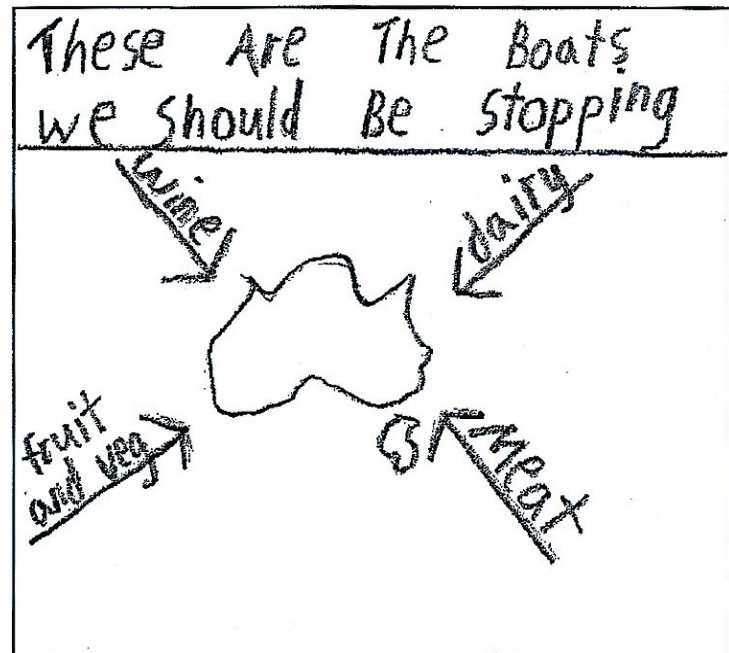 These Are The Boats
we should Be stopping
wine
dairy
fruit
and veg
Meat